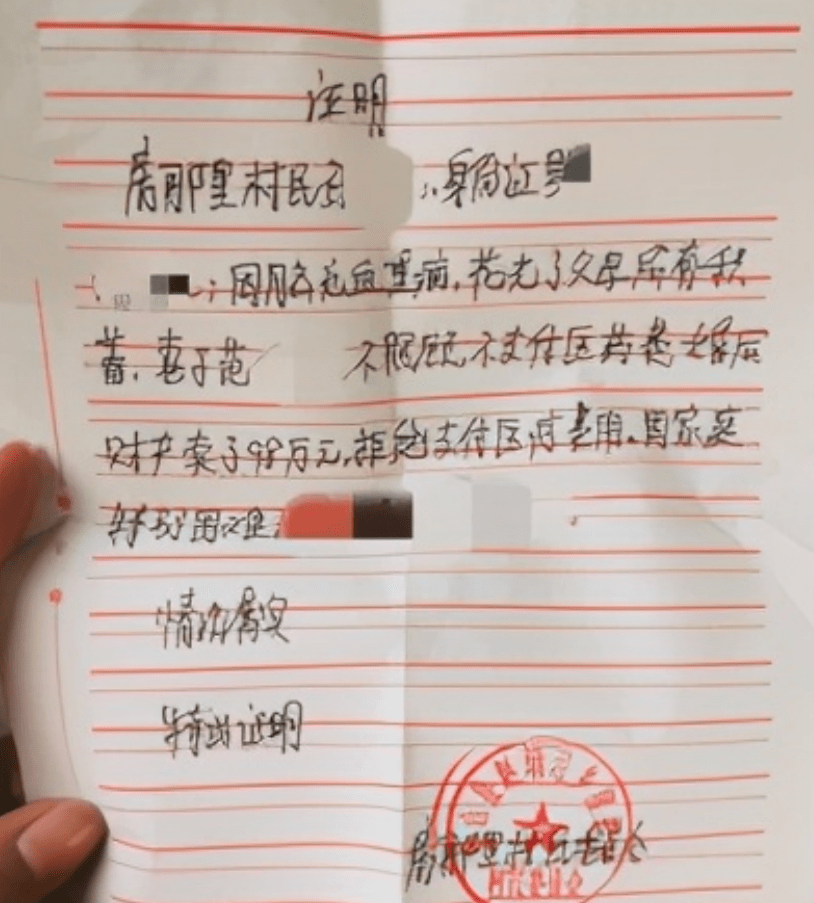 证明
房那里村民 身份证号
因 血 病,花光了父母所有积
蓄,妻子范 不照顾不支付医药费婚后
财产卖了98万元,拒绝支付医疗费用,因家庭
特别困难
情况属实
特此证明
房那里村民委员会